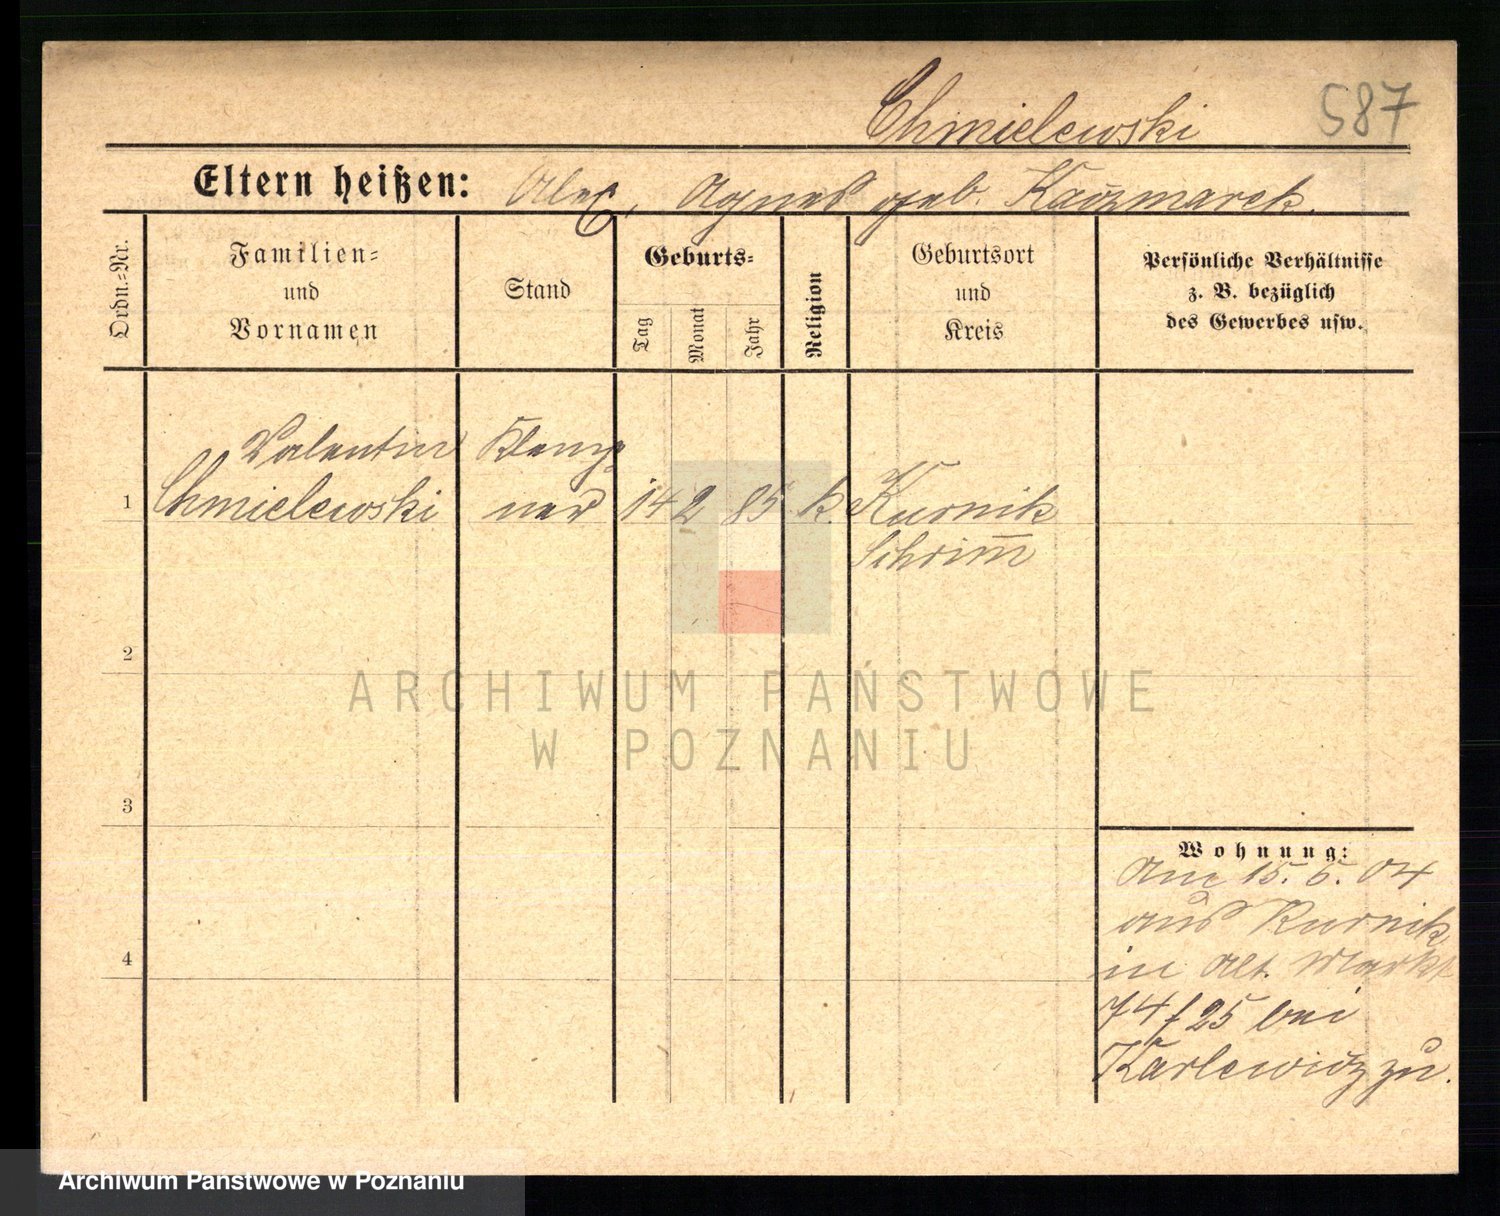 587
Chmielewski
Eltern heißen: Alex, Agnes geb. Kaczmarek.
Ordn.-Nr.
Familien- und Vornamen
Stand
Geburts-
Tag
Monat
Jahr
Religion
Geburtsort und Kreis
Persönliche Verhältnisse
z. B. bezüglich
des Gewerbes usw.
Valentin Klemp-
1 Chmielewski ner 14 2 85 k. Kurnik
Schrim̄
2
3
4
Wohnung:
Am 15. 6. 04
aus Kurnik
in Alt. Markt
74/25 bei
Karlewicz zu.
ARCHIWUM PAŃSTWOWE
W POZNANIU
Archiwum Państwowe w Poznaniu